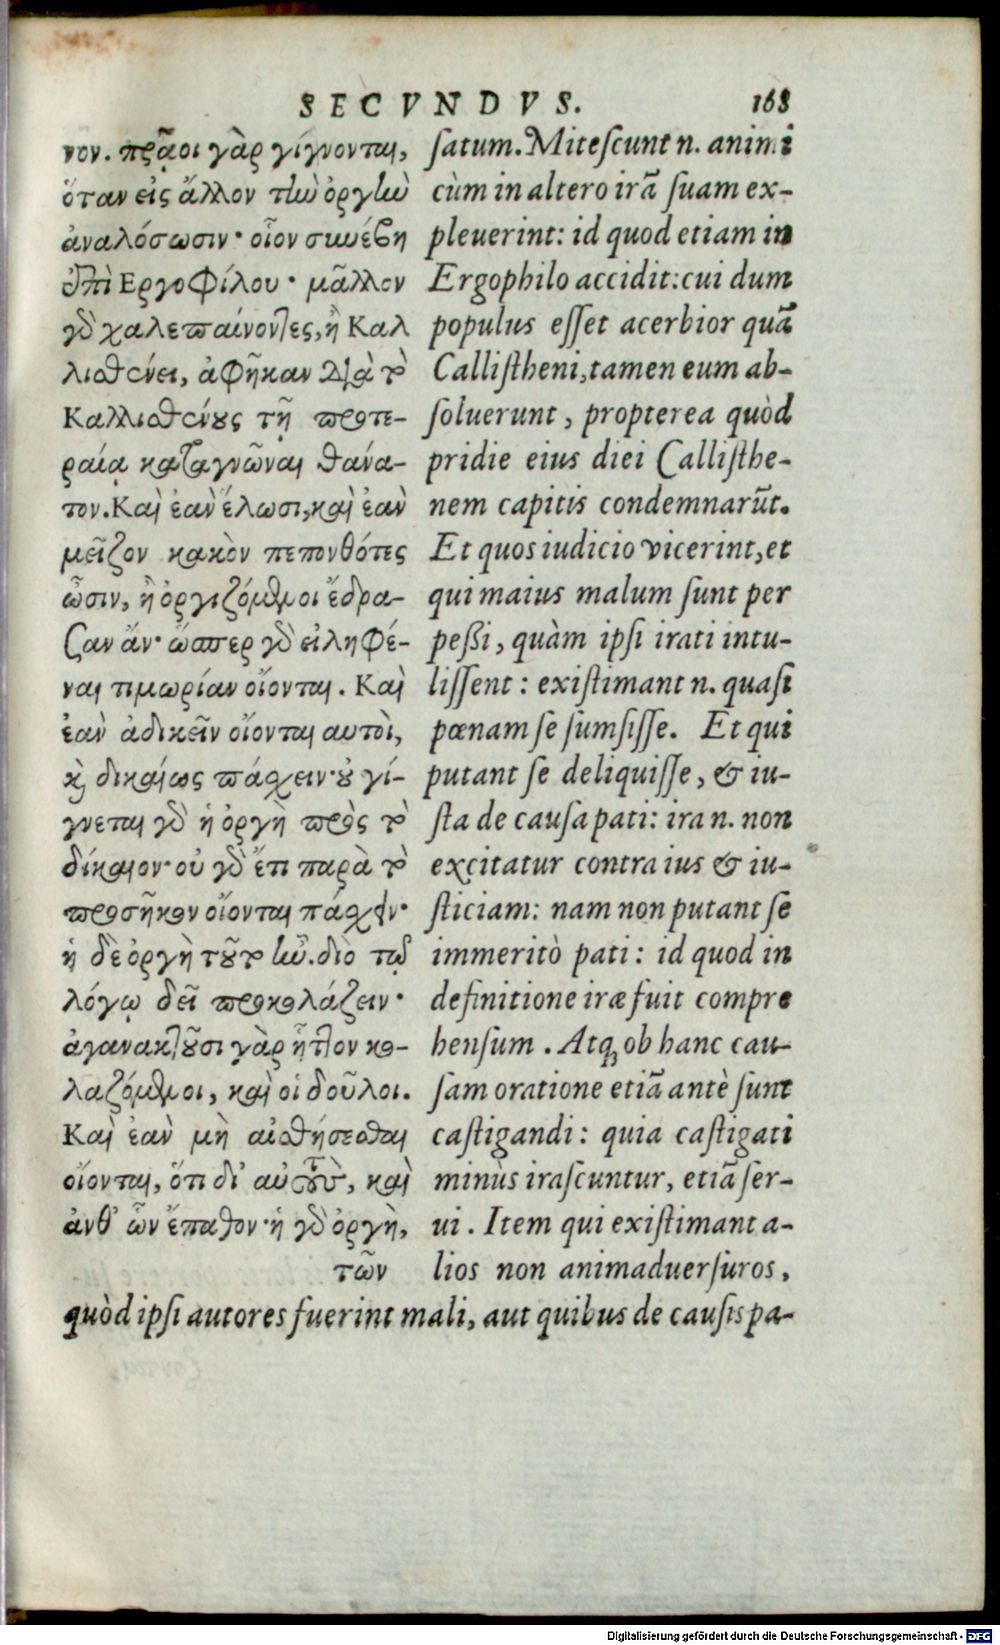 SECVNDVS. 168
νον. πρᾷοι γὰρ γίγνονται,
ὅταν εἰς ἄλλον τὴν ὀργὴν
ἀναλόσωσιν· οἷον συνέβη
ἐπὶ Εργοφίλου· μᾶλλον
γὸ χαλεπαίνοντες, ἢ Καλ
λισθένει, ἀφῆκαν διὰ τὸ
Καλλισθένους τῇ προτε-
ραίᾳ καταγνῶναι θάνα-
τον. Καὶ ἐὰν ἕλωσι, καὶ ἐὰν
μεῖζον κακὸν πεπονθότες
ὦσιν, ἢ ὀργιζόμενοι ἔδρα-
σαν ἄν· ὥσπερ γὸ εἰληφέ-
ναι τιμωρίαν οἴονται. Καὶ
ἐὰν ἀδικεῖν οἴονται αυτοὶ,
καὶ δικαίως πάσχειν· οὐ γί-
γνεται γὸ ἡ ὀργὴ πρὸς τὸ
δίκαιον· οὐ γὸ ἔτι παρὰ τὸ
προσῆκον οἴονται πάσχειν·
ἡ δὲ ὀργὴ τοῦτο ἦν. διὸ τῷ
λόγῳ δεῖ προκολάζειν·
ἀγανακτοῦσι γὰρ ἧττον κο-
λαζόμενοι, καὶ οἱ δοῦλοι.
Καὶ ἐὰν μὴ αἰσθήσεσθαι
οἴονται, ὅτι δι' αὐτοὺς, καὶ
ἀνθ' ὧν ἔπαθον· ἡ γὸ ὀργὴ,
τῶν
satum. Mitescunt n. animi
cùm in altero irā suam ex-
pleuerint: id quod etiam in
Ergophilo accidit: cui dum
populus esset acerbior quā
Callistheni, tamen eum ab-
soluerunt, propterea quòd
pridie eius diei Callisthe-
nem capitis condemnarūt.
Et quos iudicio vicerint, et
qui maius malum sunt per
peßi, quàm ipsi irati intu-
lissent: existimant n. quasi
pœnam se sumsisse. Et qui
putant se deliquisse, & iu-
sta de causa pati: ira n. non
excitatur contra ius & iu-
sticiam: nam non putant se
immeritò pati: id quod in
definitione iræ fuit compre
hensum. Atq; ob hanc cau-
sam oratione etiā antè sunt
castigandi: quia castigati
minùs irascuntur, etiā ser-
ui. Item qui existimant a-
lios non animaduersuros,
quòd ipsi autores fuerint mali, aut quibus de causis pa-
Digitalisierung gefördert durch die Deutsche Forschungsgemeinschaft - DFG